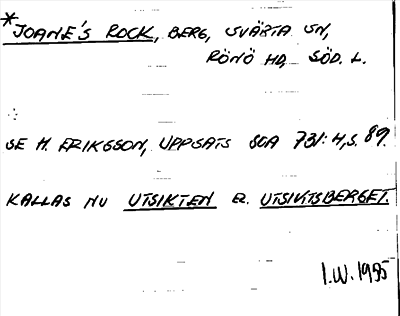 *JOANE'S ROCK, BERG, SVÄRTA SN,
RÖNÖ HD, SÖD. L.
SE H. ERIKSSON, UPPSATS SOA 731:4, S. 89.
KALLAS NU UTSIKTEN EL. UTSIKTSBERGET.
I.W. 1985